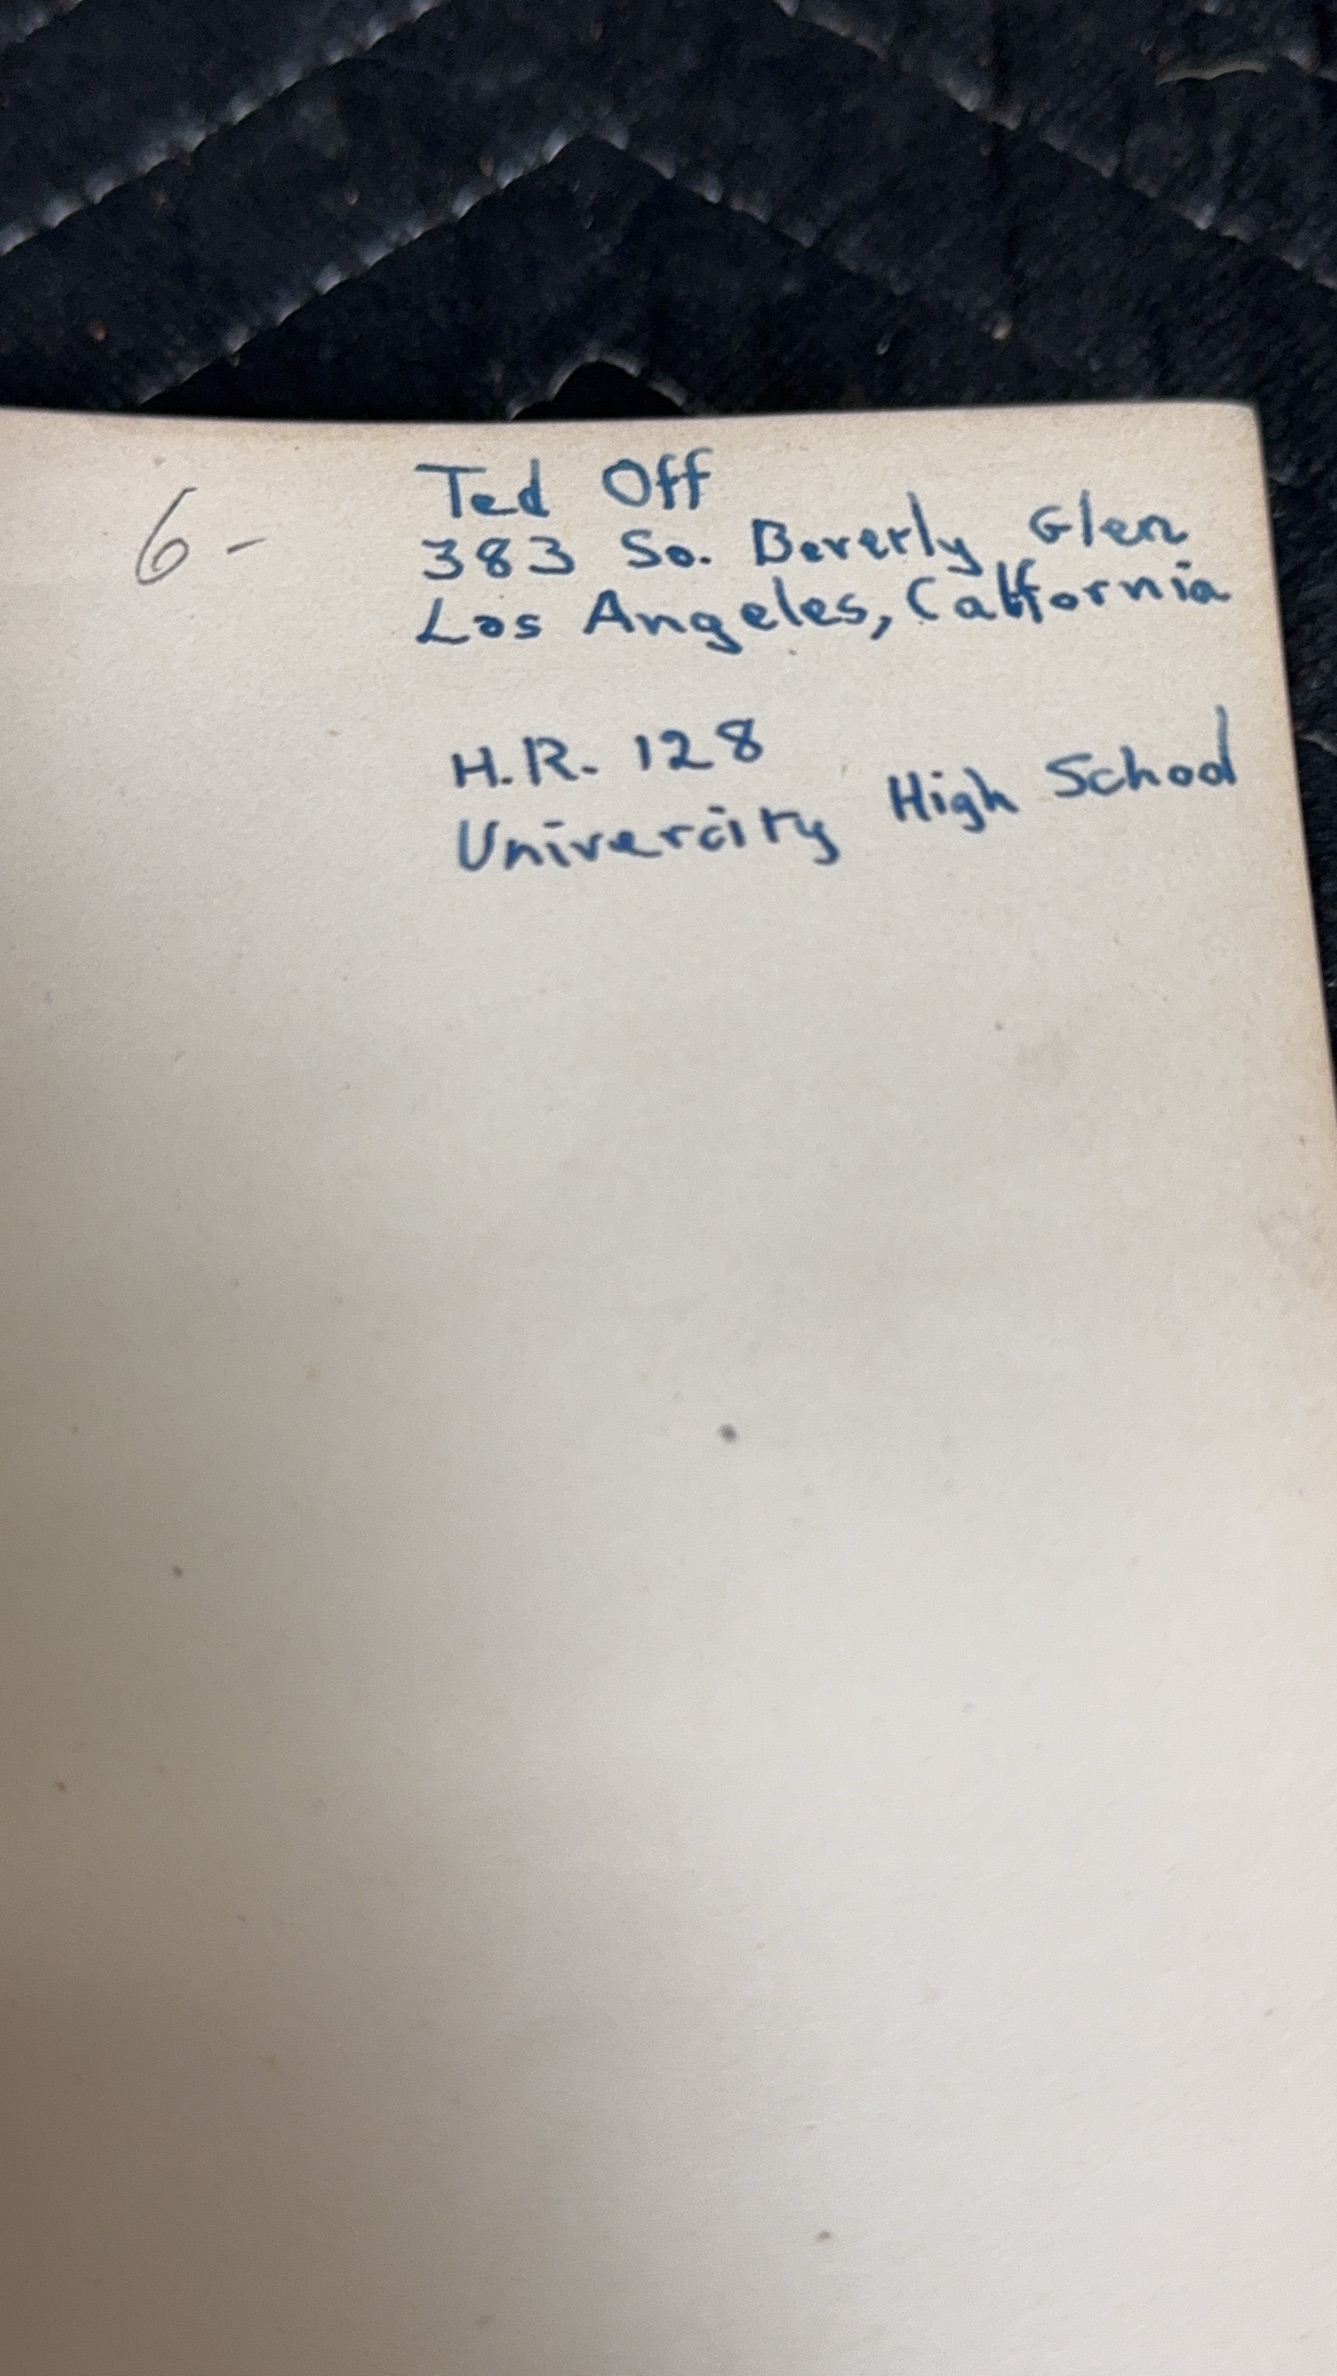 Ted Off
6- 383 So. Beverly Glen
Los Angeles, California
H.R. 128
Univercity High School